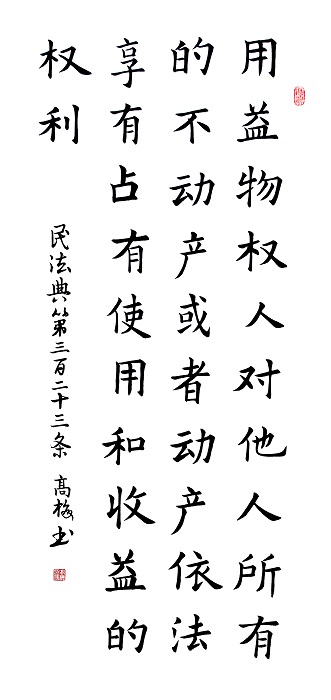 用益物权人对他人所有
的不动产或者动产依法
享有占有使用和收益的
权利
民法典第三百二十三条 高梅书